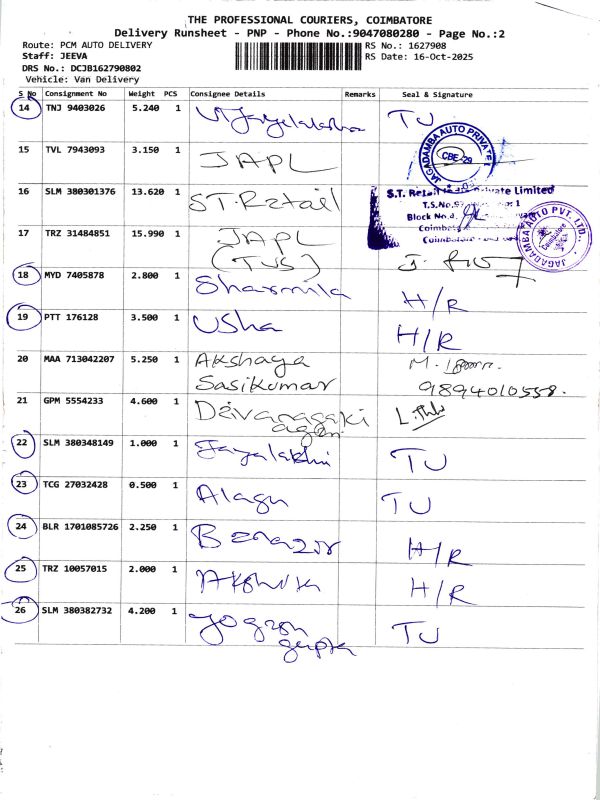 THE PROFESSIONAL COURIERS, COIMBATORE
Delivery Runsheet - PNP - Phone No.:9047080280 - Page No.:2
Route: PCM AUTO DELIVERY RS No.: 1627908
Staff: JEEVA RS Date: 16-Oct-2025
DRS No.: DCJB162790802
Vehicle: Van Delivery
S No Consignment No Weight PCS Consignee Details Remarks Seal & Signature
14 TNJ 9403026 5.240 1 TU
15 TVL 7943093 3.150 1 JAPL
JAGADAMBA AUTO PRIVATE
CBE-29
16 SLM 380301376 13.620 1 S.T. Retail
S.T. Retail Private Limited
T.S.No.
Block No.
Coimbatore
17 TRZ 31484851 15.990 1 JAPL
(TVS)
JAGADAMBA AUTO PVT. LTD.
Coimbatore
18 MYD 7405878 2.800 1 Sharmila H/R
19 PTT 176128 3.500 1 Usha H/R
20 MAA 713042207 5.250 1 Akshaya
Sasikumar 9894010558.
21 GPM 5554233 4.600 1
22 SLM 380348149 1.000 1 TU
23 TCG 27032428 0.500 1 Alagu TU
24 BLR 1701085726 2.250 1 H/R
25 TRZ 10057015 2.000 1 H/R
26 SLM 380382732 4.200 1 TU
gupta